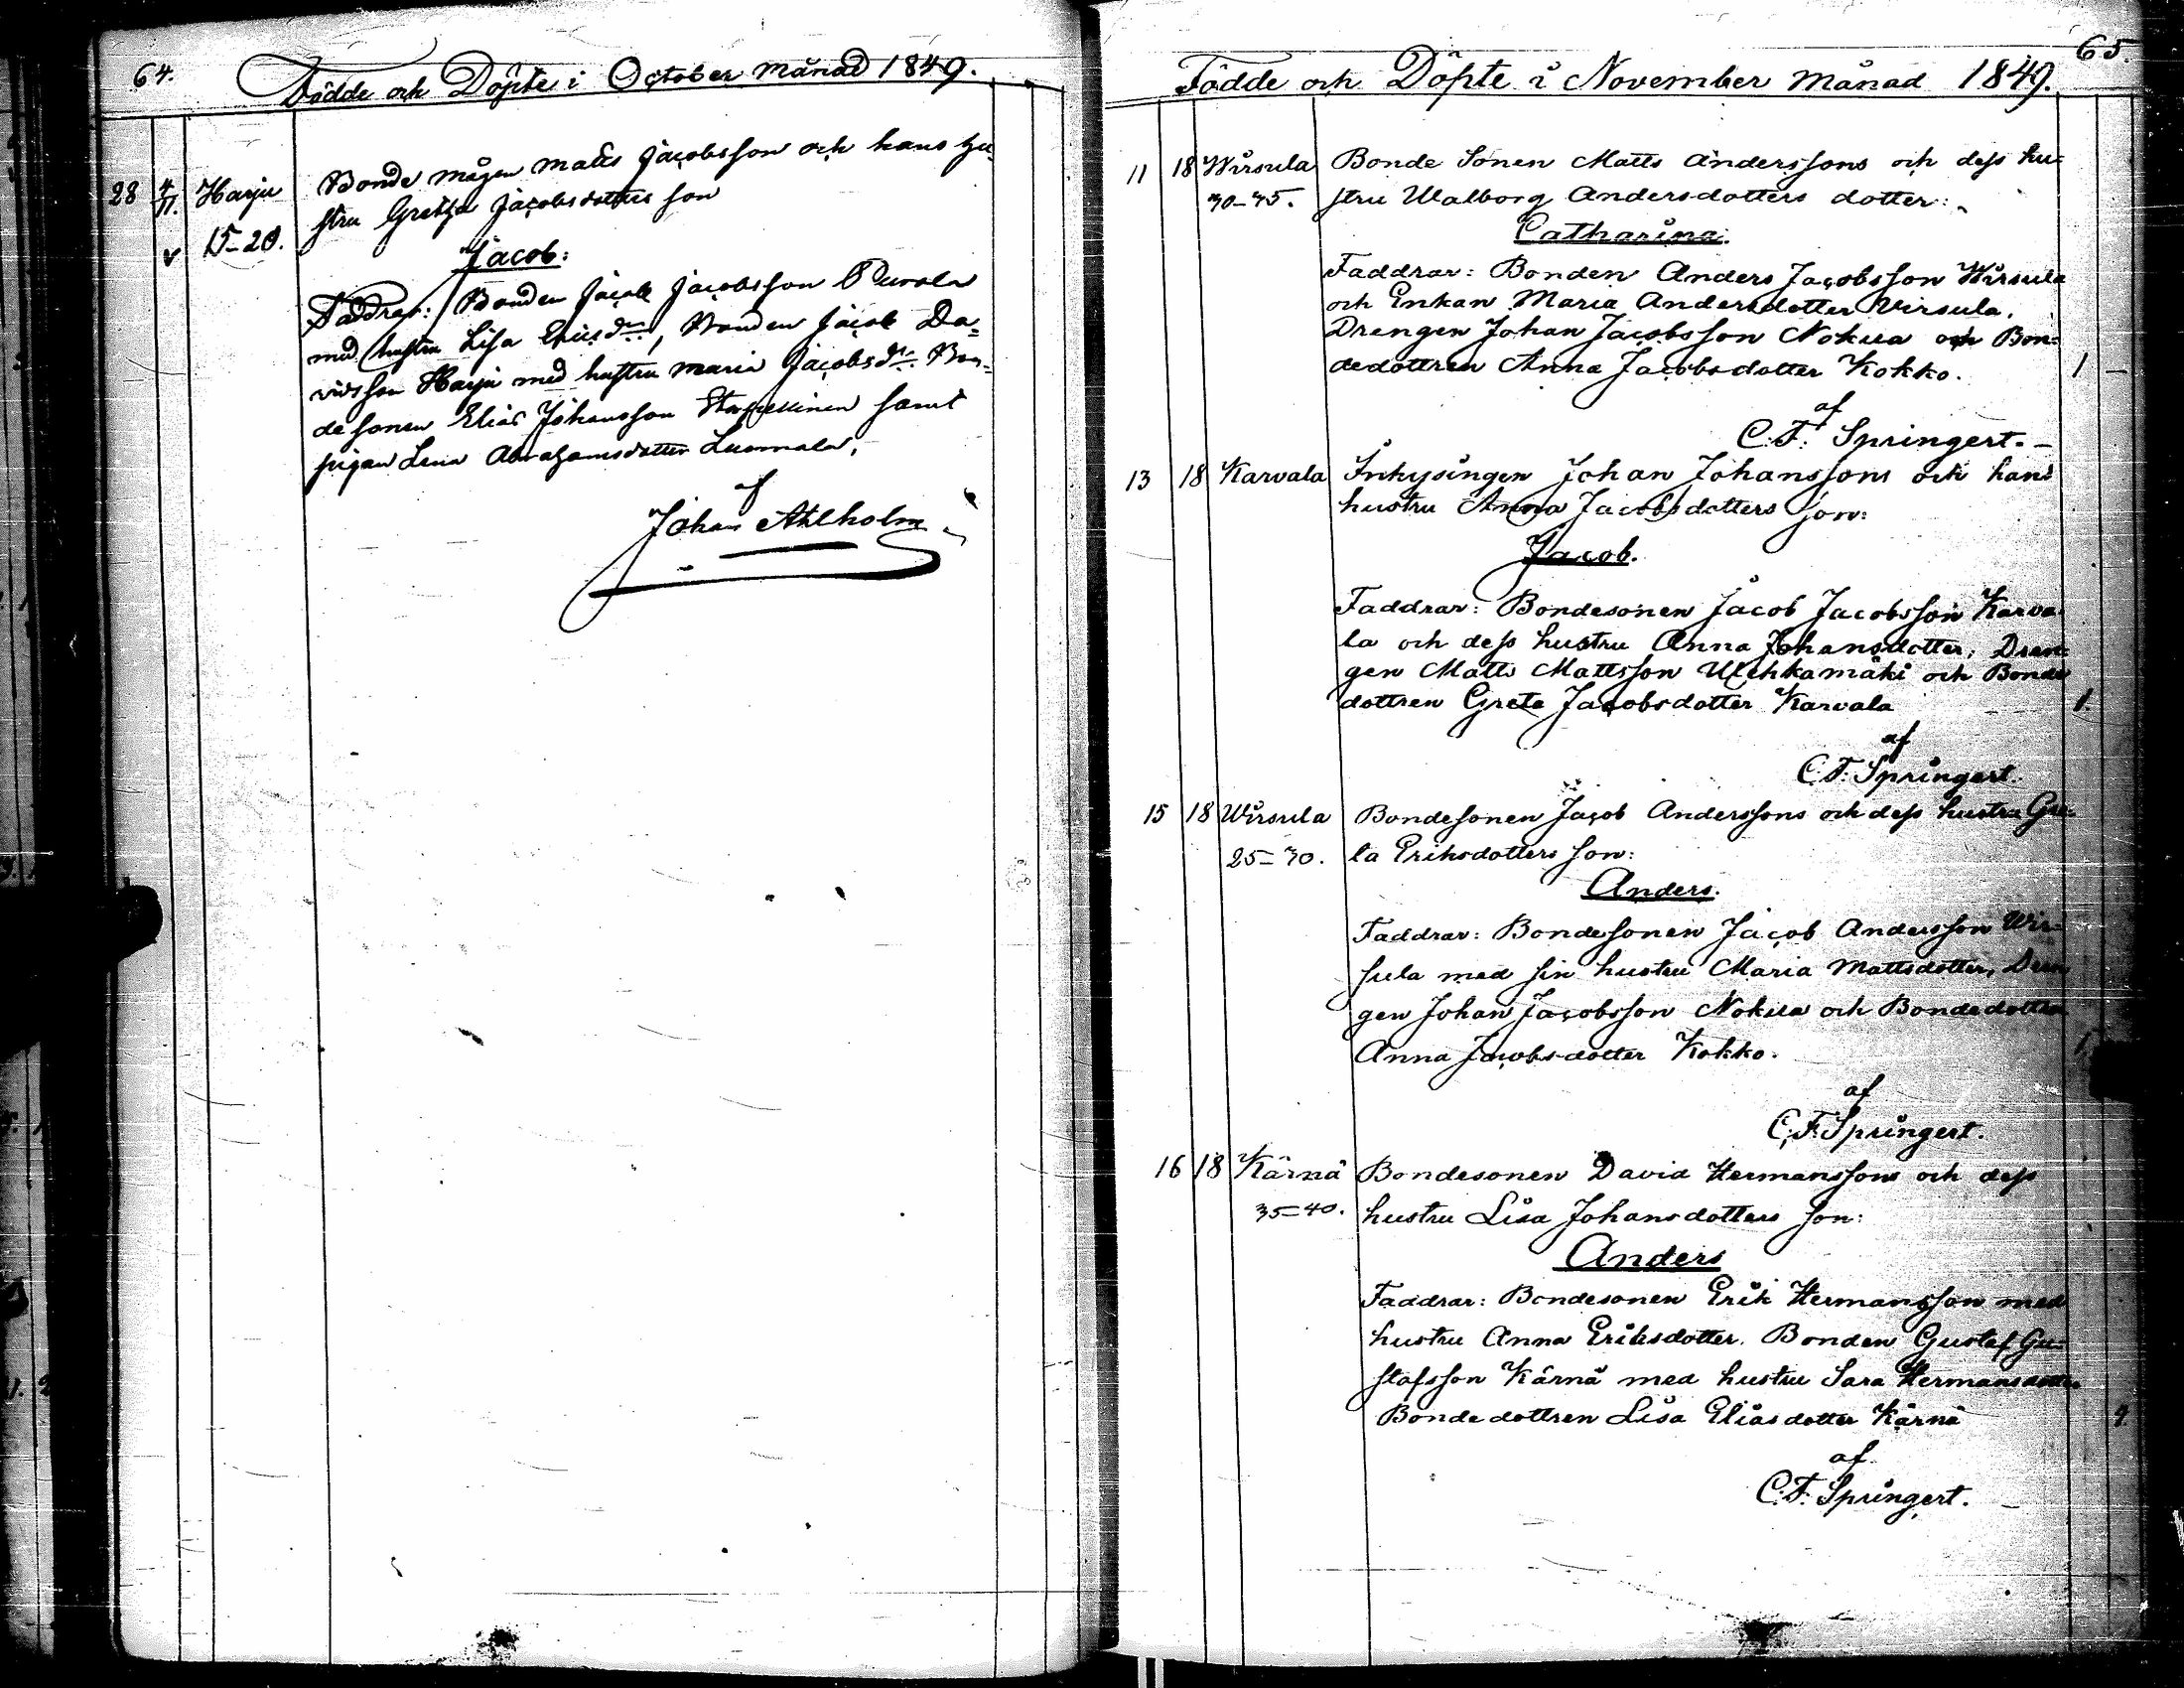 64.
Födde och Döpte i October månad 1849.
28 4/11. Harju Bonde mågen Matts Jacobsson och hans hu-
stru Gretha Jacobsdotters son
v 15-20.
Jacob:
Faddrar: Bonden Jacob Jacobsson Purola
med hustru Lisa Ericsdr, Bonden Jacob Da-
vidsson Harju med hustru Maria Jacobsdr. Bon-
desonen Elias Johansson samt
pigan Lena Abrahamsdotter
af
Johan Ahlholm
65.
Födde och Döpte i November månad 1849.
11 18 Wirsula Bonde Sonen Matts Anderssons och dess hu-
30-35. stru Walborg Andersdotters dotter:
Catharina.
Faddrar: Bonden Anders Jacobsson Wirsula
och Enkan Maria Andersdotter Virsula.
Drengen Johan Jacobsson Nokua och Bon-
dedottren Anna Jacobsdotter Kokko. 1 -
af
C.F. Springert. -
13 18 Karvala Inhysingen Johan Johanssons och hans
hustru Anna Jacobsdotters son:
Jacob.
Faddrar: Bondesonen Jacob Jacobsson Karva-
la och dess hustru Anna Johansdotter, Dren-
gen Matts Mattsson Uchkamäki och Bonde
dottren Greta Jacobsdotter Karvala 1.
af
C.F. Springert.
15 18 Wirsula Bondesonen Jacob Anderssons och dess hustru Gre-
25-30. ta Eriksdotters son:
Anders.
Faddrar: Bondesonen Jacob Andersson Wir-
sula med sin hustru Maria Mattsdotter, Dren-
gen Johan Jacobsson Nokua och Bondedottren
Anna Jacobsdotter Kokko. 1
af
C.F. Springert.
16 18 Kärnä Bondesonen David Hermanssons och dess
35-40. hustru Lisa Johansdotters son:
Anders
Faddrar: Bondesonen Erik Hermansson med
hustru Anna Eriksdotter. Bonden Gustaf Gu-
stafsson Kärnä med hustru Sara Hermansdotter
Bondedottren Lisa Eliasdotter Kärnä
af
C.F. Springert.